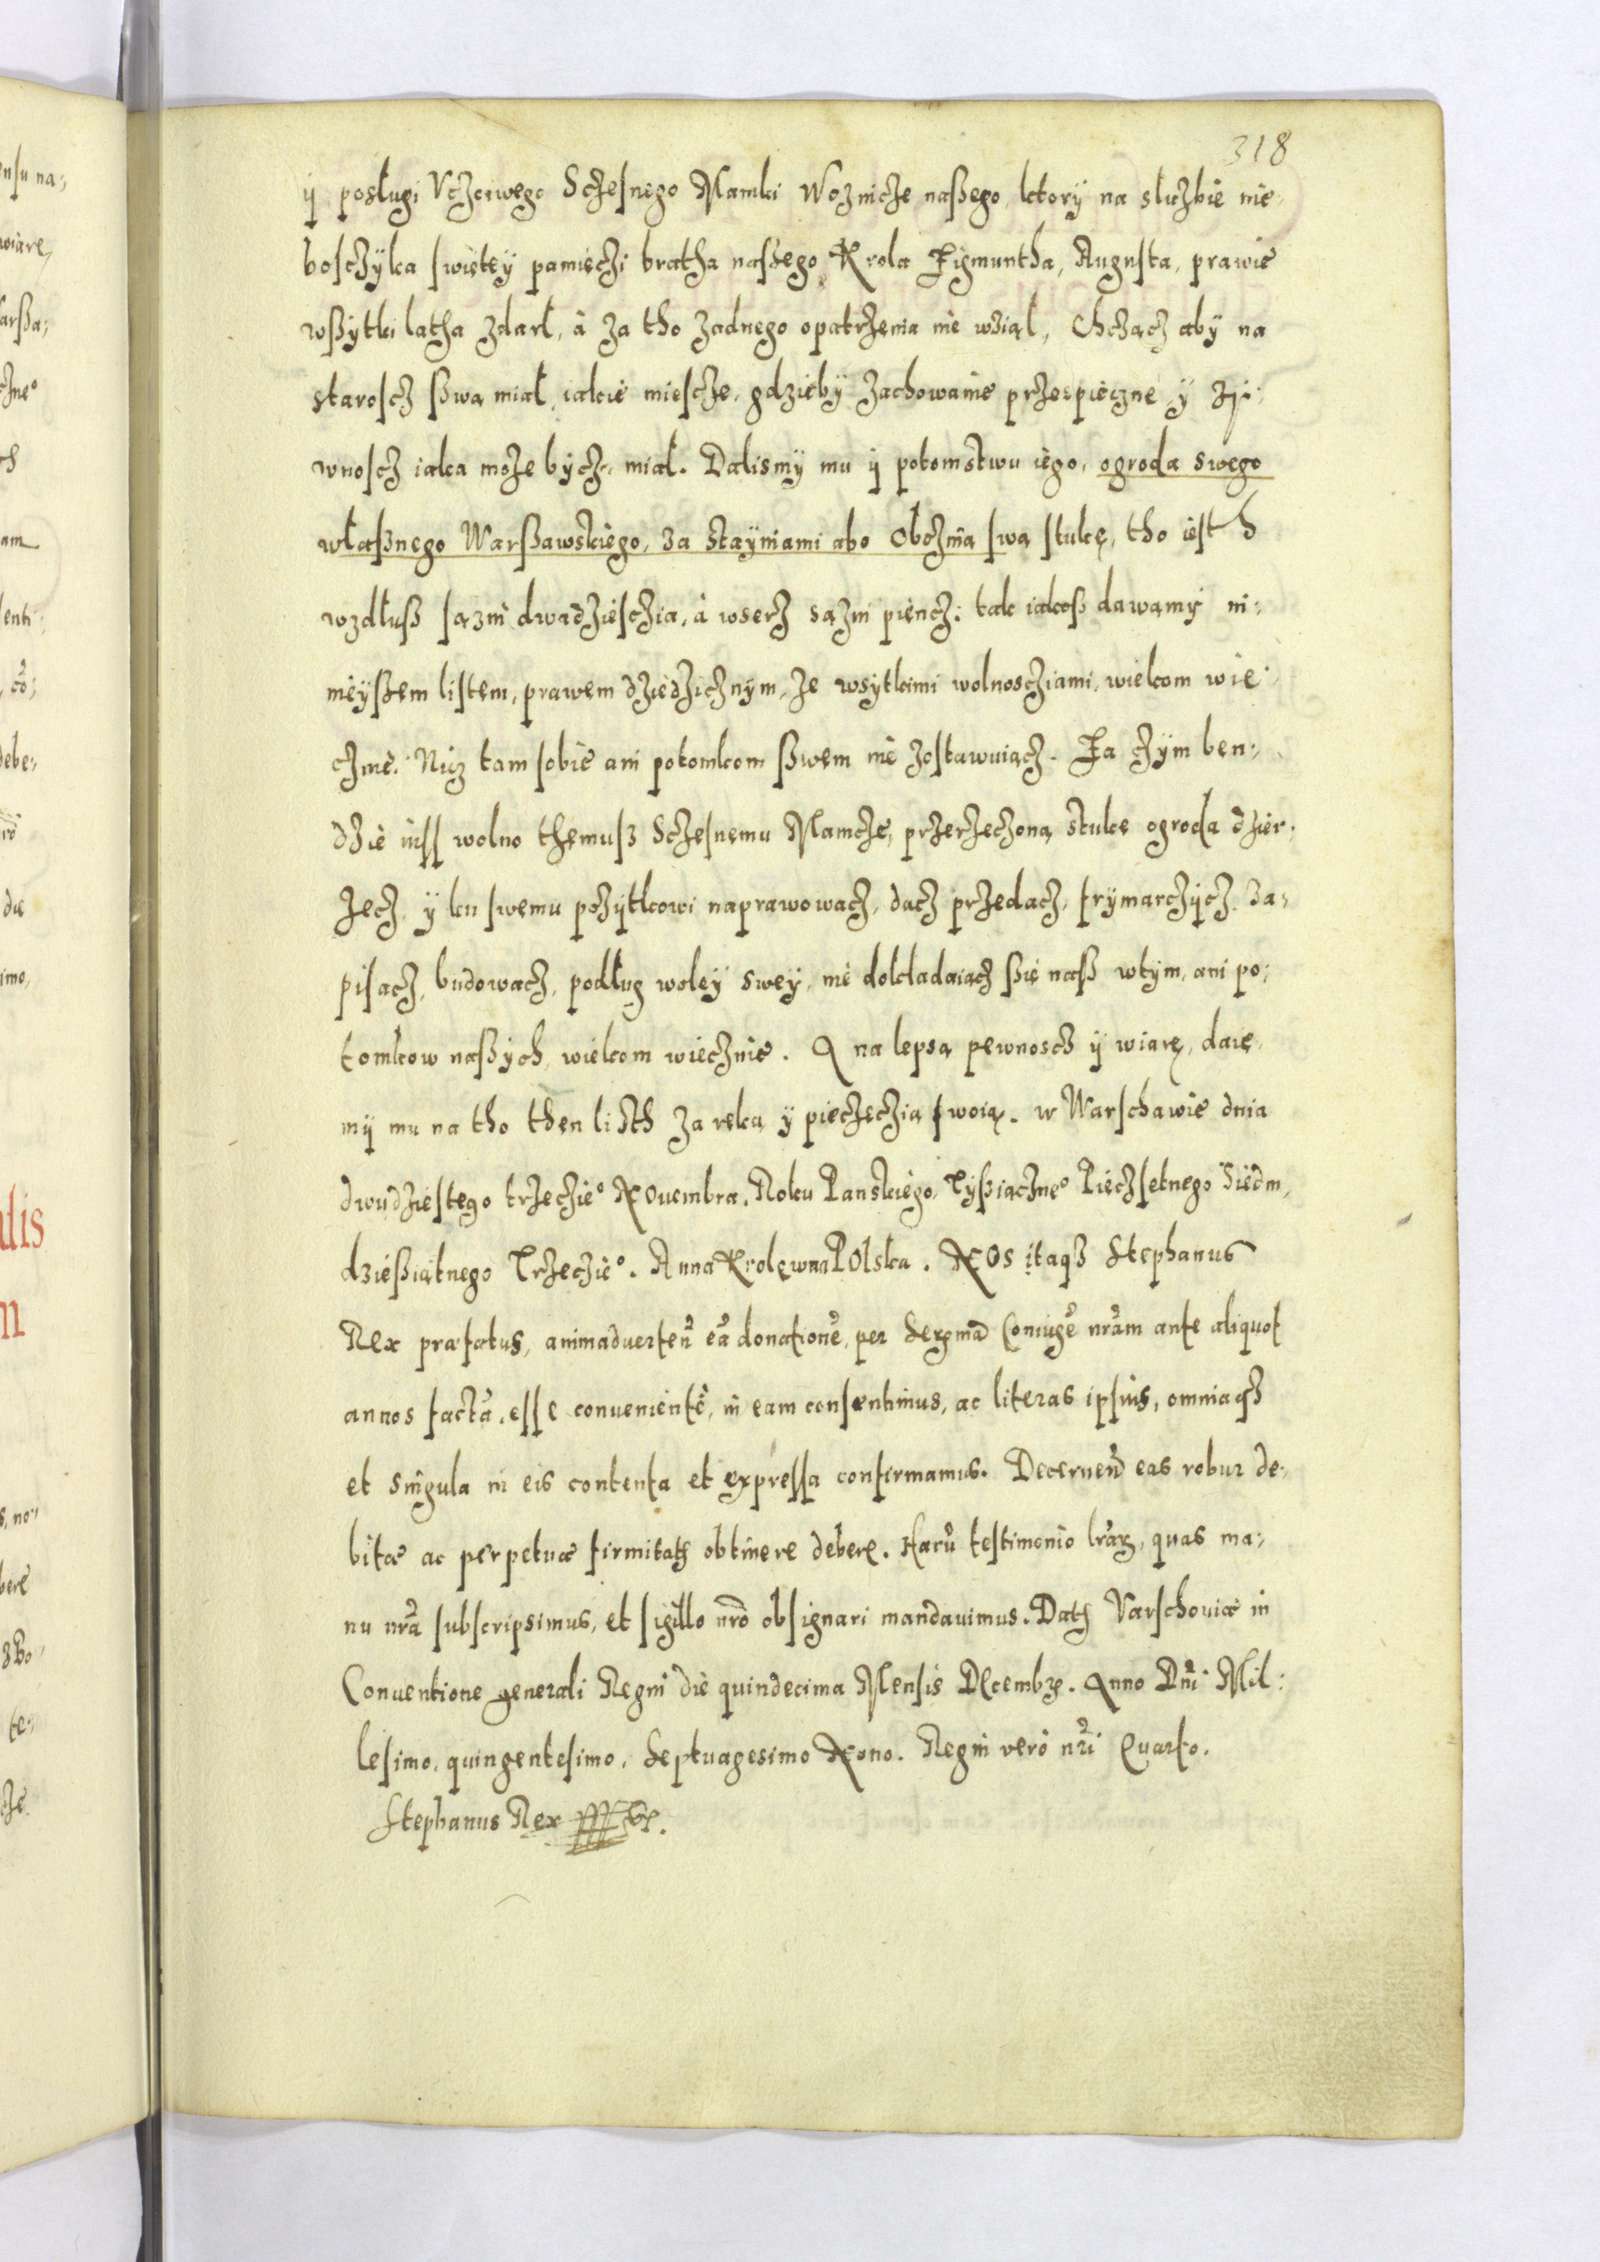 318
ÿ posługi Vczciwego Sczęsnego Mamki Woznicze naßego ktorÿ na słuzbie nie-
bosczÿka swiętey pamięczi bratha naszego Krola Zigmuntha, Augusta, prawie
wßÿtki latha zdarł, à za tho zadnego opatrzenia nie wziął, Chczącz abÿ na
staroscz ßwą miał iakie miescze, gdziebÿ zachowanie przezpieczne ÿ zÿ-
wnoscz iaka moze bÿcz, miał. Dalismÿ mu ÿ potomstwu iego, ogroda swego
własznego Warßawskiego, za staÿniami abo Obcznią swą stukę, tho iesth
wzdłuß sązni dwadziesczia, à wserz sązni pięncz: tak iakoß dawamÿ ni-
nieÿszem listem, prawem dziedzicznÿm, ze wsÿtkimi wolnoscziami, wiekom wie-
cznie. Nicz tam sobie ani potomkom ßwem nie zostawuiącz. Za czÿm ben-
dzie iuss wolno themusz Sczęsnemu Mamcze, przerzeczoną stukę ogroda dzier-
zecz ÿ ku swemu pozÿtkowi naprawowacz, dacz przedacz, frÿmarczÿcz za-
pisacz, budowacz, podług woleÿ sweÿ, nie dokladaiącz ßię naß wtÿm, ani po-
tomkow naßÿch, wiekom wiecznie. A na lepsą pewnoscz ÿ wiarę, daie-
mÿ mu na tho then listh za ręką ÿ pieczęczią swoią. w Warschawie dnia
dwudziestego trzeczie° Nouembra. Roku Panskiego, Tÿßiączne° Pięczsetnego Siedm-
dzießiątnego Trzeczie°. Anna Krolewna Polska. Nos itaqз Stephanus
Rex præfatus, animaduerteñ eã donationẽ, per Serẽmã Coniugẽ nrãm ante aliquot
annos factã, esse conuenientẽ, in eam consentimus, ac literas ipsius, omniaqз
et singula in eis contenta et expressa confirmamus. Decerneñ eas robur de-
bitæ ac perpetuæ firmitatis obtinere debere. Harũ testimonio lrãrꝫ, quas ma-
nu nrã subscripsimus, et sigillo nrõ obsignari mandauimus. Datꝫ Varschouiæ in
Conuentione generali Regni die quindecima Mensis Decembꝫ. Anno Dñi Mil-
lesimo, quingentesimo, Septuagesimo Nono. Regni verò nr̃i Quarto.
Stephanus Rex